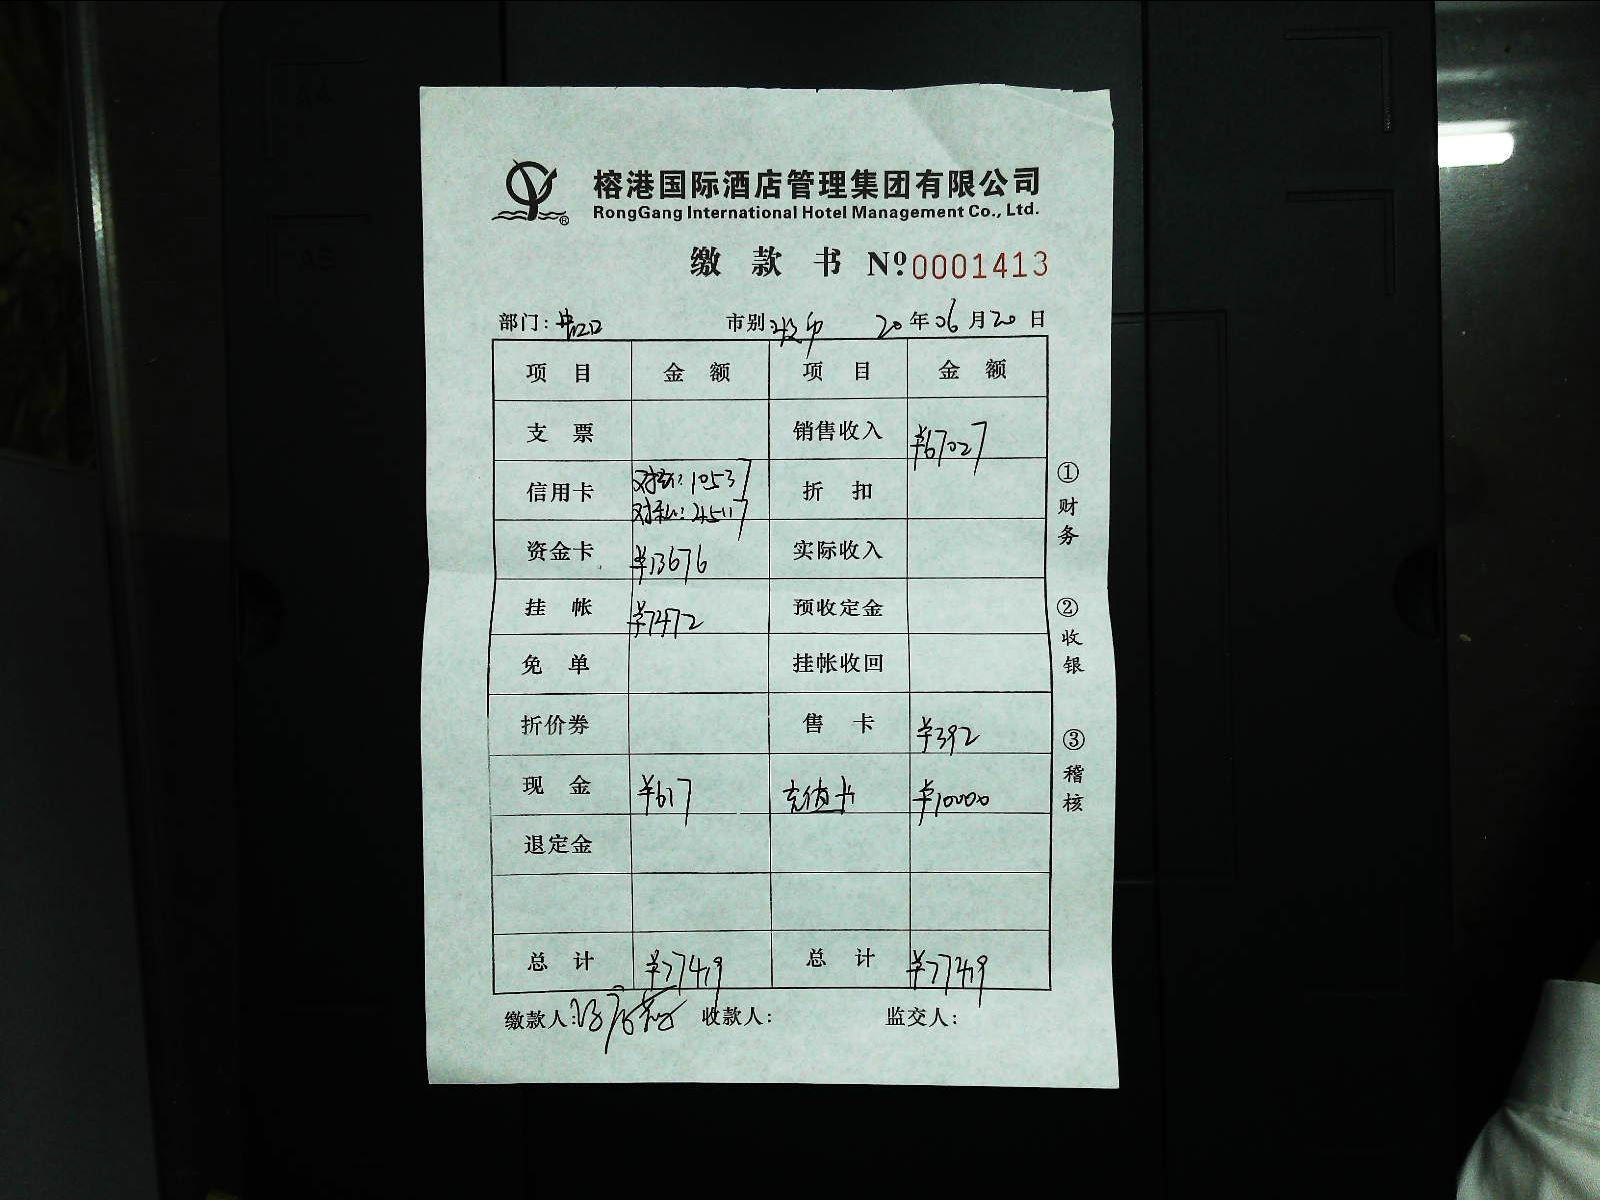 榕港国际酒店管理集团有限公司
RongGang International Hotel Management Co., Ltd.
缴款书 Nº 0001413
部门: 市别: 20年06月20日
项目 金额 项目 金额
支票 销售收入 ¥67027
信用卡 对公:10537 折扣
对私:45117
资金卡 ¥13676 实际收入
挂帐 ¥7472 预收定金
免单 挂帐收回
折价券 售卡 ¥392
现金 ¥617 充值卡 ¥10000
退定金
总计 ¥77419 总计 ¥77419
缴款人: 收款人: 监交人:
①财务
②收银
③稽核
A4
A5